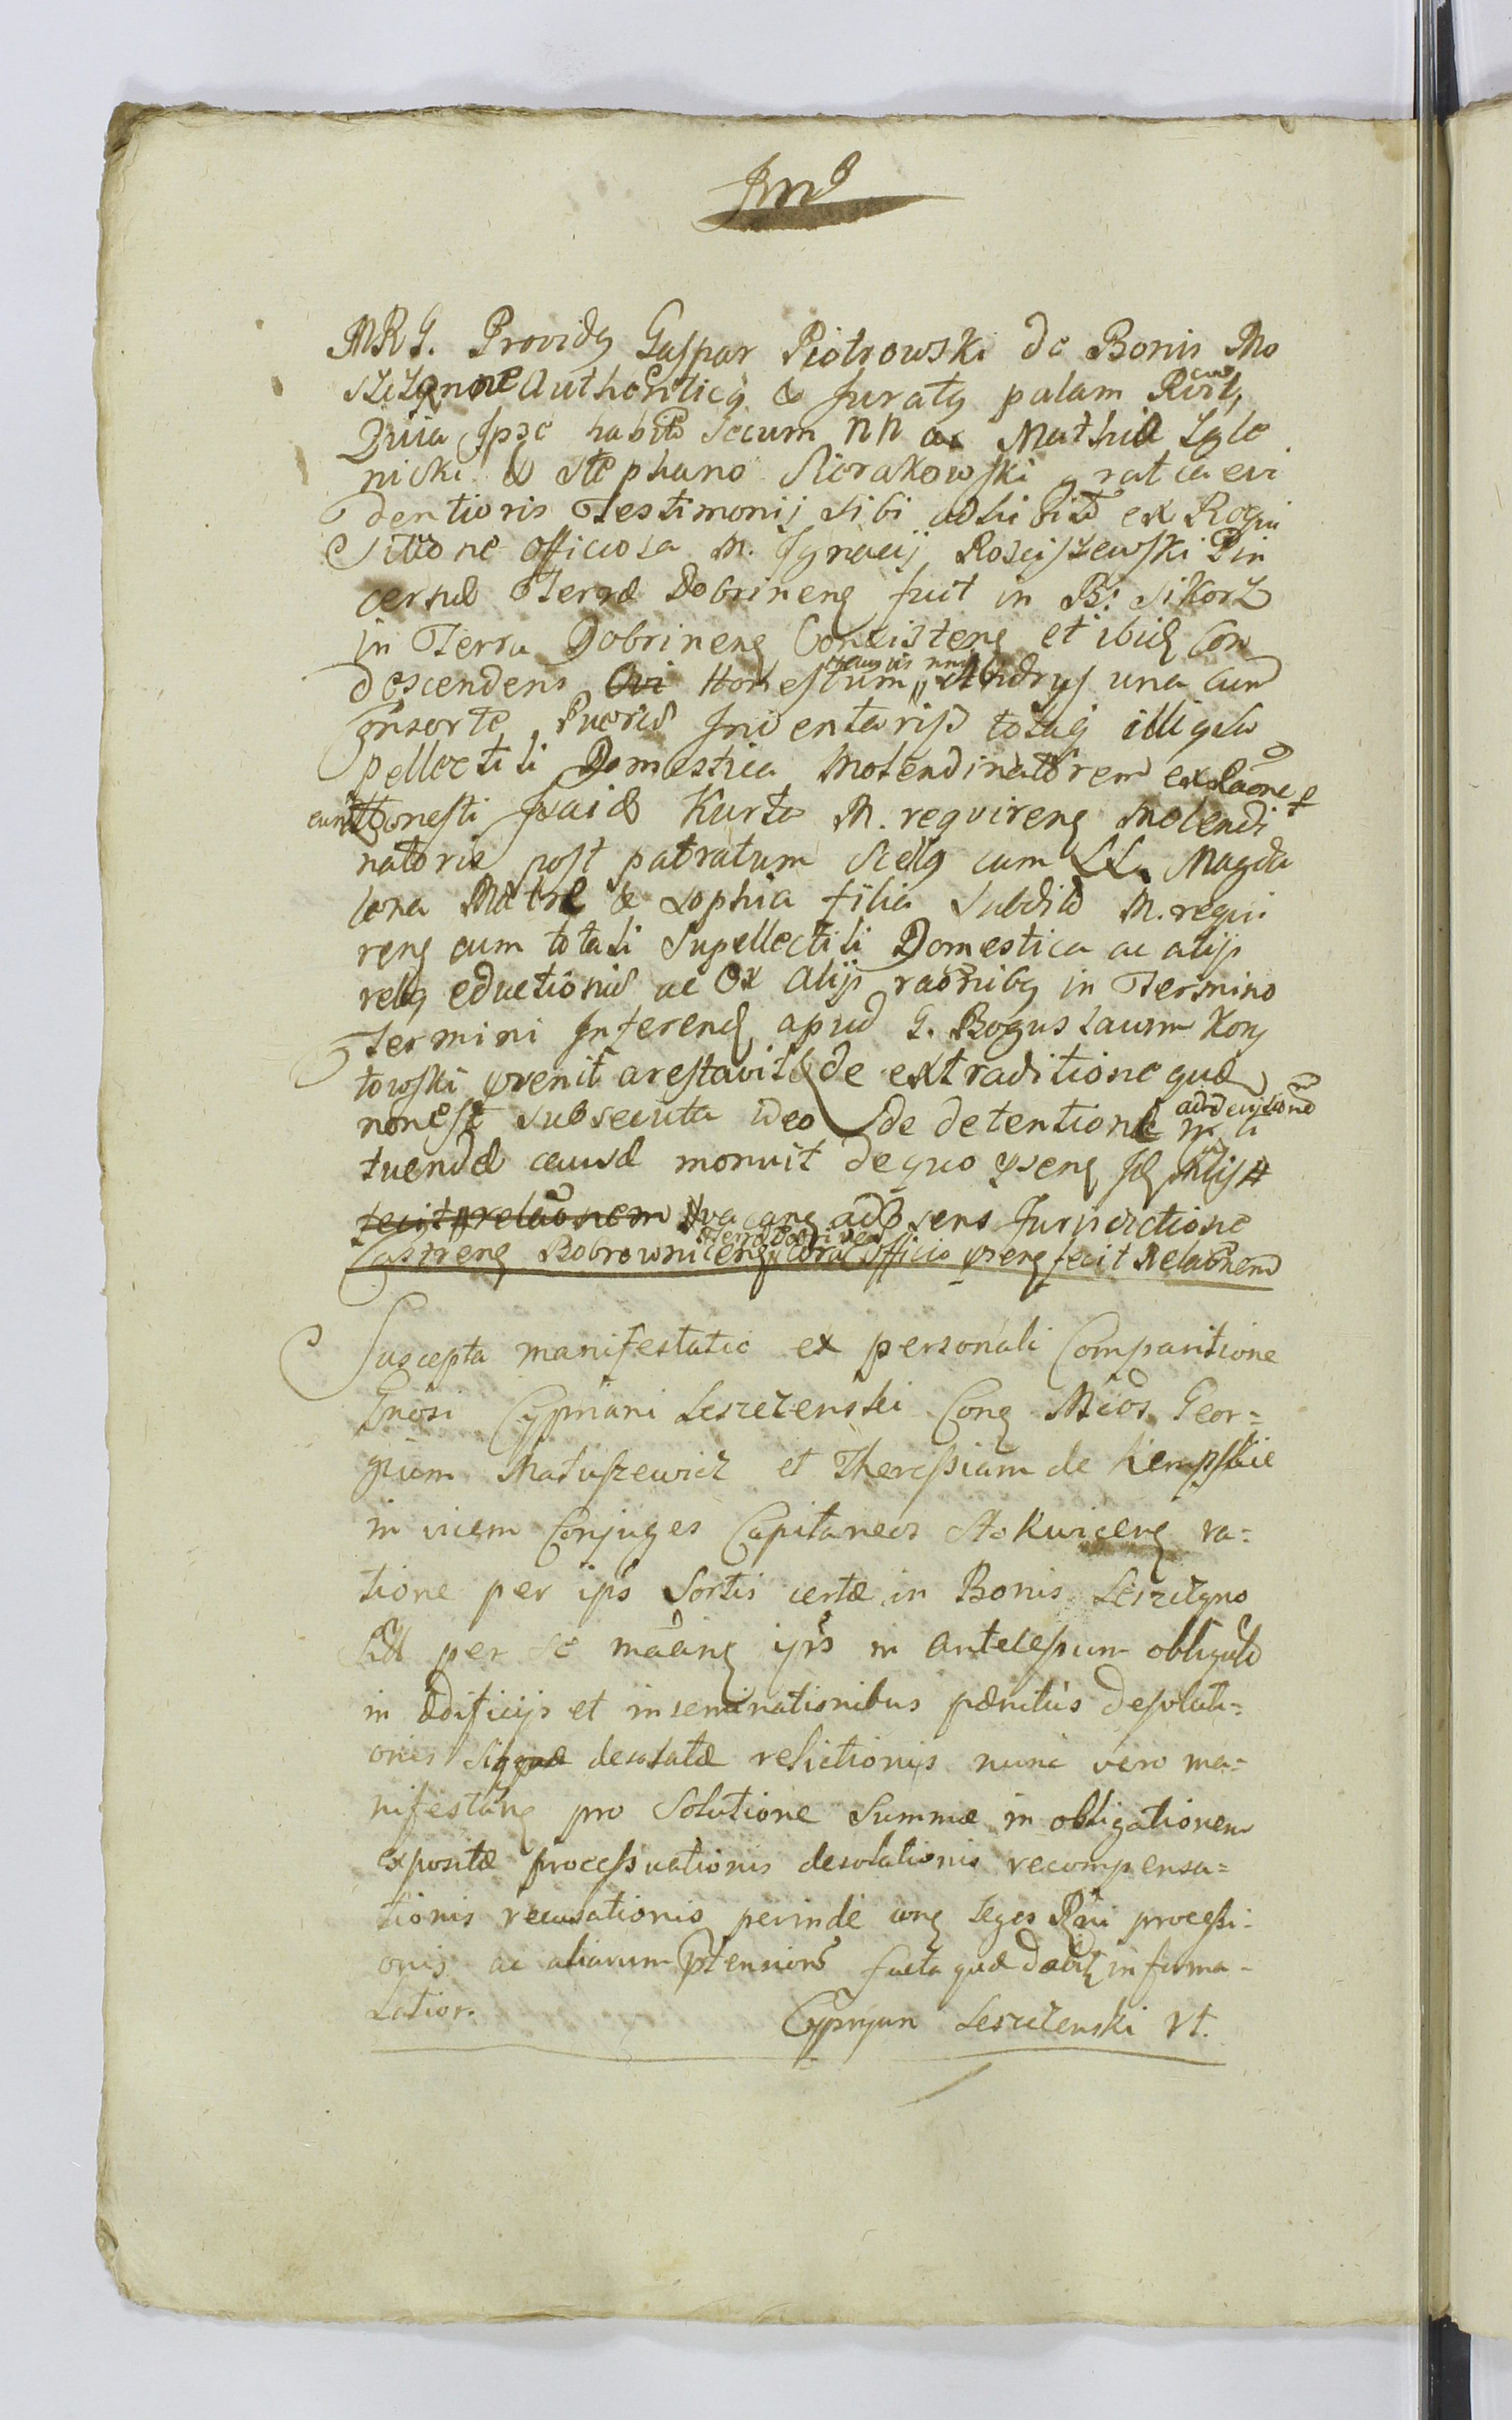 MRG. Providq Gaspar Piotrowski de Bonis Mo
szczonne Authenticq & Juratq palam
Quia Ipse habito secum nn ac Mathia Zgle
nicki & Stephano Sierakowski gratia evi
dentioris Testimonij sibi adhibito ex Requi
sitione officiosa M. Ignacij Rosciszewski Pin
cernæ Terræ Dobrineng fuit in B. Sikorz
in Terra Dobrineng Consisteng et ibid Con
descendens Honestum Andrys una cum
Consorte Pueris Inventarijs totaq illiq su
pellectili Domestica Molendinatorem ex raone
Honesti Kurto M. requireng Molendi
natoris post patratum Scelq cum LL. Magda
lena Matre & Sophia filia subdit M. requi
reng cum totali Supellectili Domestica ac alijs
rebq eductionis ac ex alijs raonibq in Termino
Termini Inferend apud G. Boguslaum Kon
towski pvenit arestavit & de extraditione quæ
non est subsecuta ideo de detentione ad decisione insti
tuendæ causæ monuit de quo pseng
fecit relaonem sens Jurisdictione
Castreng Bobrowniceng Terræ Officio pseng fecit Relaonem
Suscepta manifestatio ex personali Comparitione
Gnosi Cypriani Leszczenski Cong Mcos Geor=
gium Matuszewicz et Theressiam de Kempskie
in vicem Conjuges Capitaneos Stokviceng ra=
tione per ipos Sortis certæ in Bonis Leszczyno
per se maang ipis in antecessum obligatæ
in ædificijs et inseminationibus pænitus desolati=
onis desolatæ relictionis nunc vero ma=
nifestang pro Solutione Summæ in obligationem
expositæ processuationis desolationis recompensa=
tionis recusationis perinde cong Leges Rni processi-
onis ac aliarum ptensionu facta quæ dabit in forma-
latior.
Cypryan Leszczenski rt.